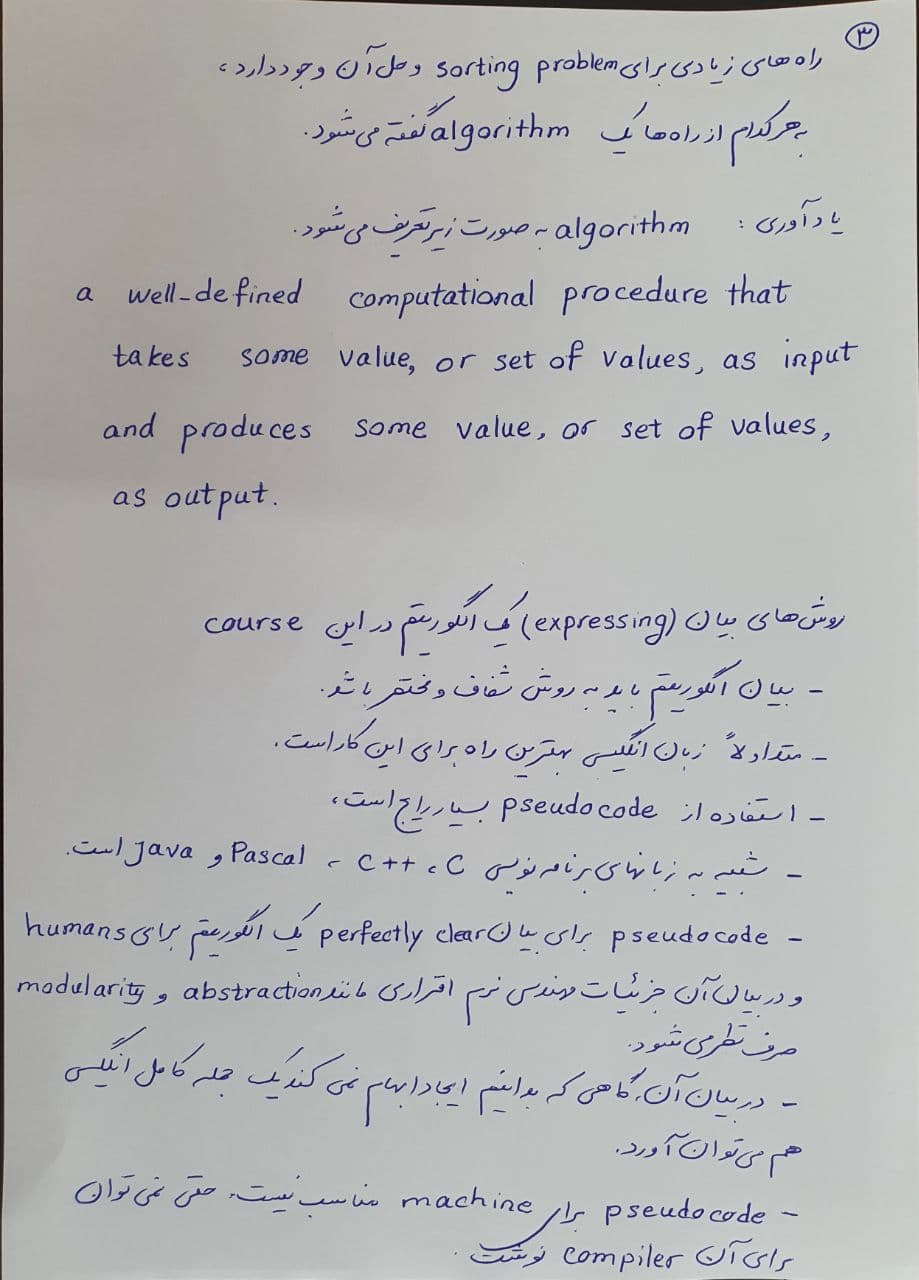 ۳
راه های زیادی برای sorting problem و حل آن وجود دارد،
به هر کدام از راه ها یک algorithm گفته می شود.
یادآوری : algorithm به صورت زیر تعریف می شود.
a well-defined computational procedure that
takes some value, or set of values, as input
and produces some value, or set of values,
as output.
روش های بیان (expressing) یک الگوریتم در این course
- بیان الگوریتم باید به روش شفاف و مختصر باشد.
- متداولاً زبان انگلیسی بهترین راه برای این کار است.
- استفاده از pseudocode بسیار رایج است،
- شبیه به زبانهای برنامه نویسی C، C++، Pascal و Java است.
- pseudocode برای بیان perfectly clear یک الگوریتم برای humans
و در بیان آن جزئیات مهندسی نرم افزاری مانند abstraction و modularity
صرف نظر می شود.
- در بیان آن، گاهی که بدانیم ایجاد ابهام نمی کند یک جمله کامل انگلیسی
هم می توان آورد.
- pseudocode برای machine مناسب نیست، حتی نمی توان
برای آن compiler نوشت.